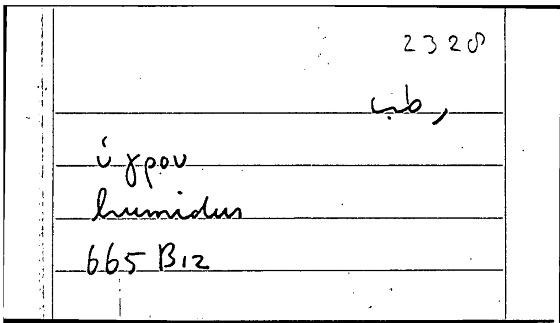 2328
رطب
ὑγρου
humidus
665 B12